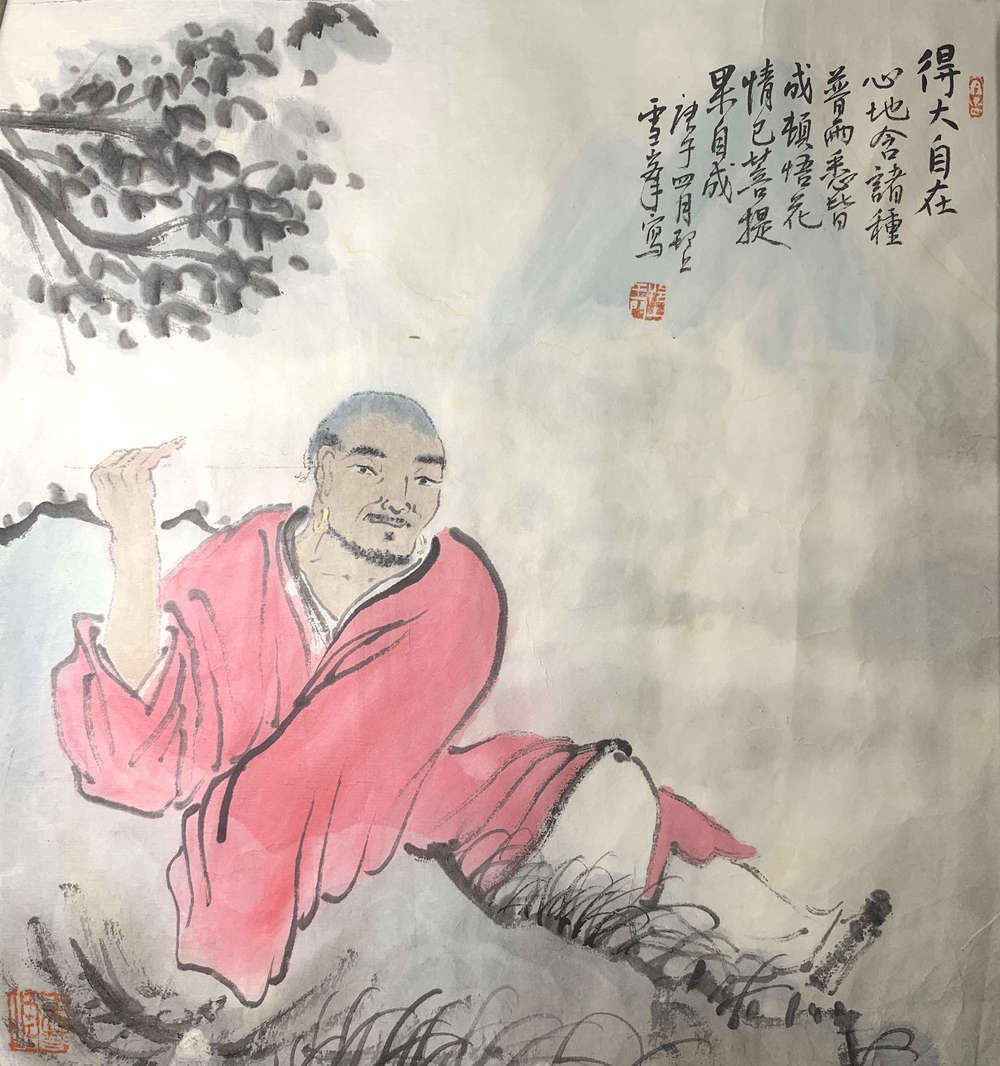 得大自在
心地含諸種
普雨悉皆
成頓悟花
情已菩提
果自成
庚午四月
雪峯寫